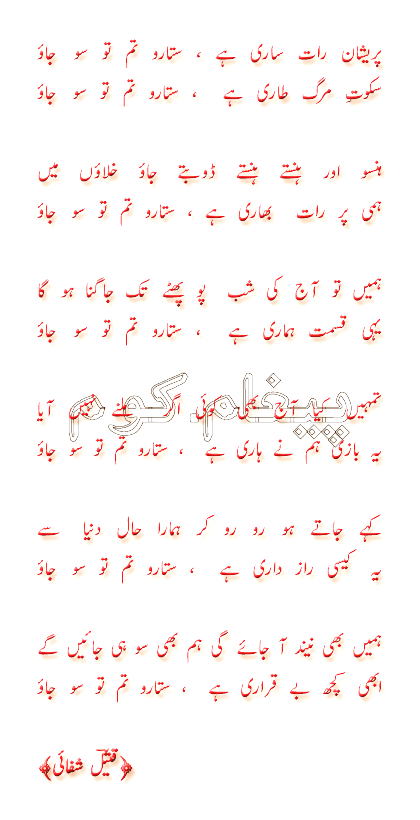 پریشان رات ساری ہے ، ستارو تم تو سو جاؤ
سکوتِ مرگ طاری ہے ، ستارو تم تو سو جاؤ
ہنسو اور ہنستے ہنستے ڈوبتے جاؤ خلاؤں میں
ہمی پر رات بھاری ہے ، ستارو تم تو سو جاؤ
ہمیں تو آج کی شب پو پھٹے تک جاگنا ہو گا
یہی قسمت ہماری ہے ، ستارو تم تو سو جاؤ
تمہیں کیا آج بھی کوئی اگر ملنے نہیں آیا
یہ بازی ہم نے ہاری ہے ، ستارو تم تو سو جاؤ
کہے جاتے ہو رو رو کر ہمارا حال دنیا سے
یہ کیسی راز داری ہے ، ستارو تم تو سو جاؤ
ہمیں بھی نیند آ جائے گی ہم بھی سو ہی جائیں گے
ابھی کچھ بے قراری ہے ، ستارو تم تو سو جاؤ
﴿قتیلؔ شفائی﴾
پیغام.کوم